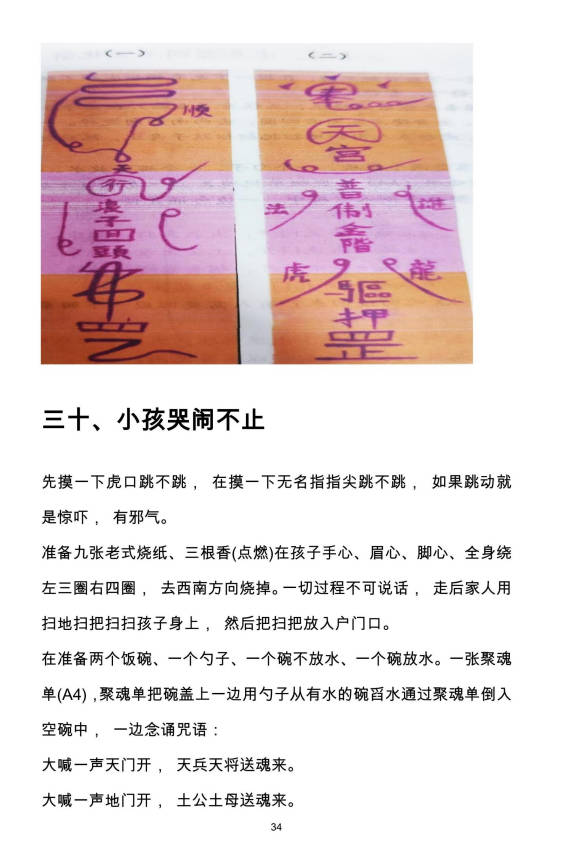 （一）
（二）
順
天
行
浪子回頭
天
宮
普
制
金
階
法
雄
虎
龍
驅
押
罡
三十、小孩哭闹不止
先摸一下虎口跳不跳， 在摸一下无名指指尖跳不跳， 如果跳动就
是惊吓， 有邪气。
准备九张老式烧纸、三根香(点燃)在孩子手心、眉心、脚心、全身绕
左三圈右四圈， 去西南方向烧掉。一切过程不可说话， 走后家人用
扫地扫把扫扫孩子身上， 然后把扫把放入户门口。
在准备两个饭碗、一个勺子、一个碗不放水、一个碗放水。一张聚魂
单(A4)，聚魂单把碗盖上一边用勺子从有水的碗舀水通过聚魂单倒入
空碗中， 一边念诵咒语：
大喊一声天门开， 天兵天将送魂来。
大喊一声地门开， 土公土母送魂来。
34